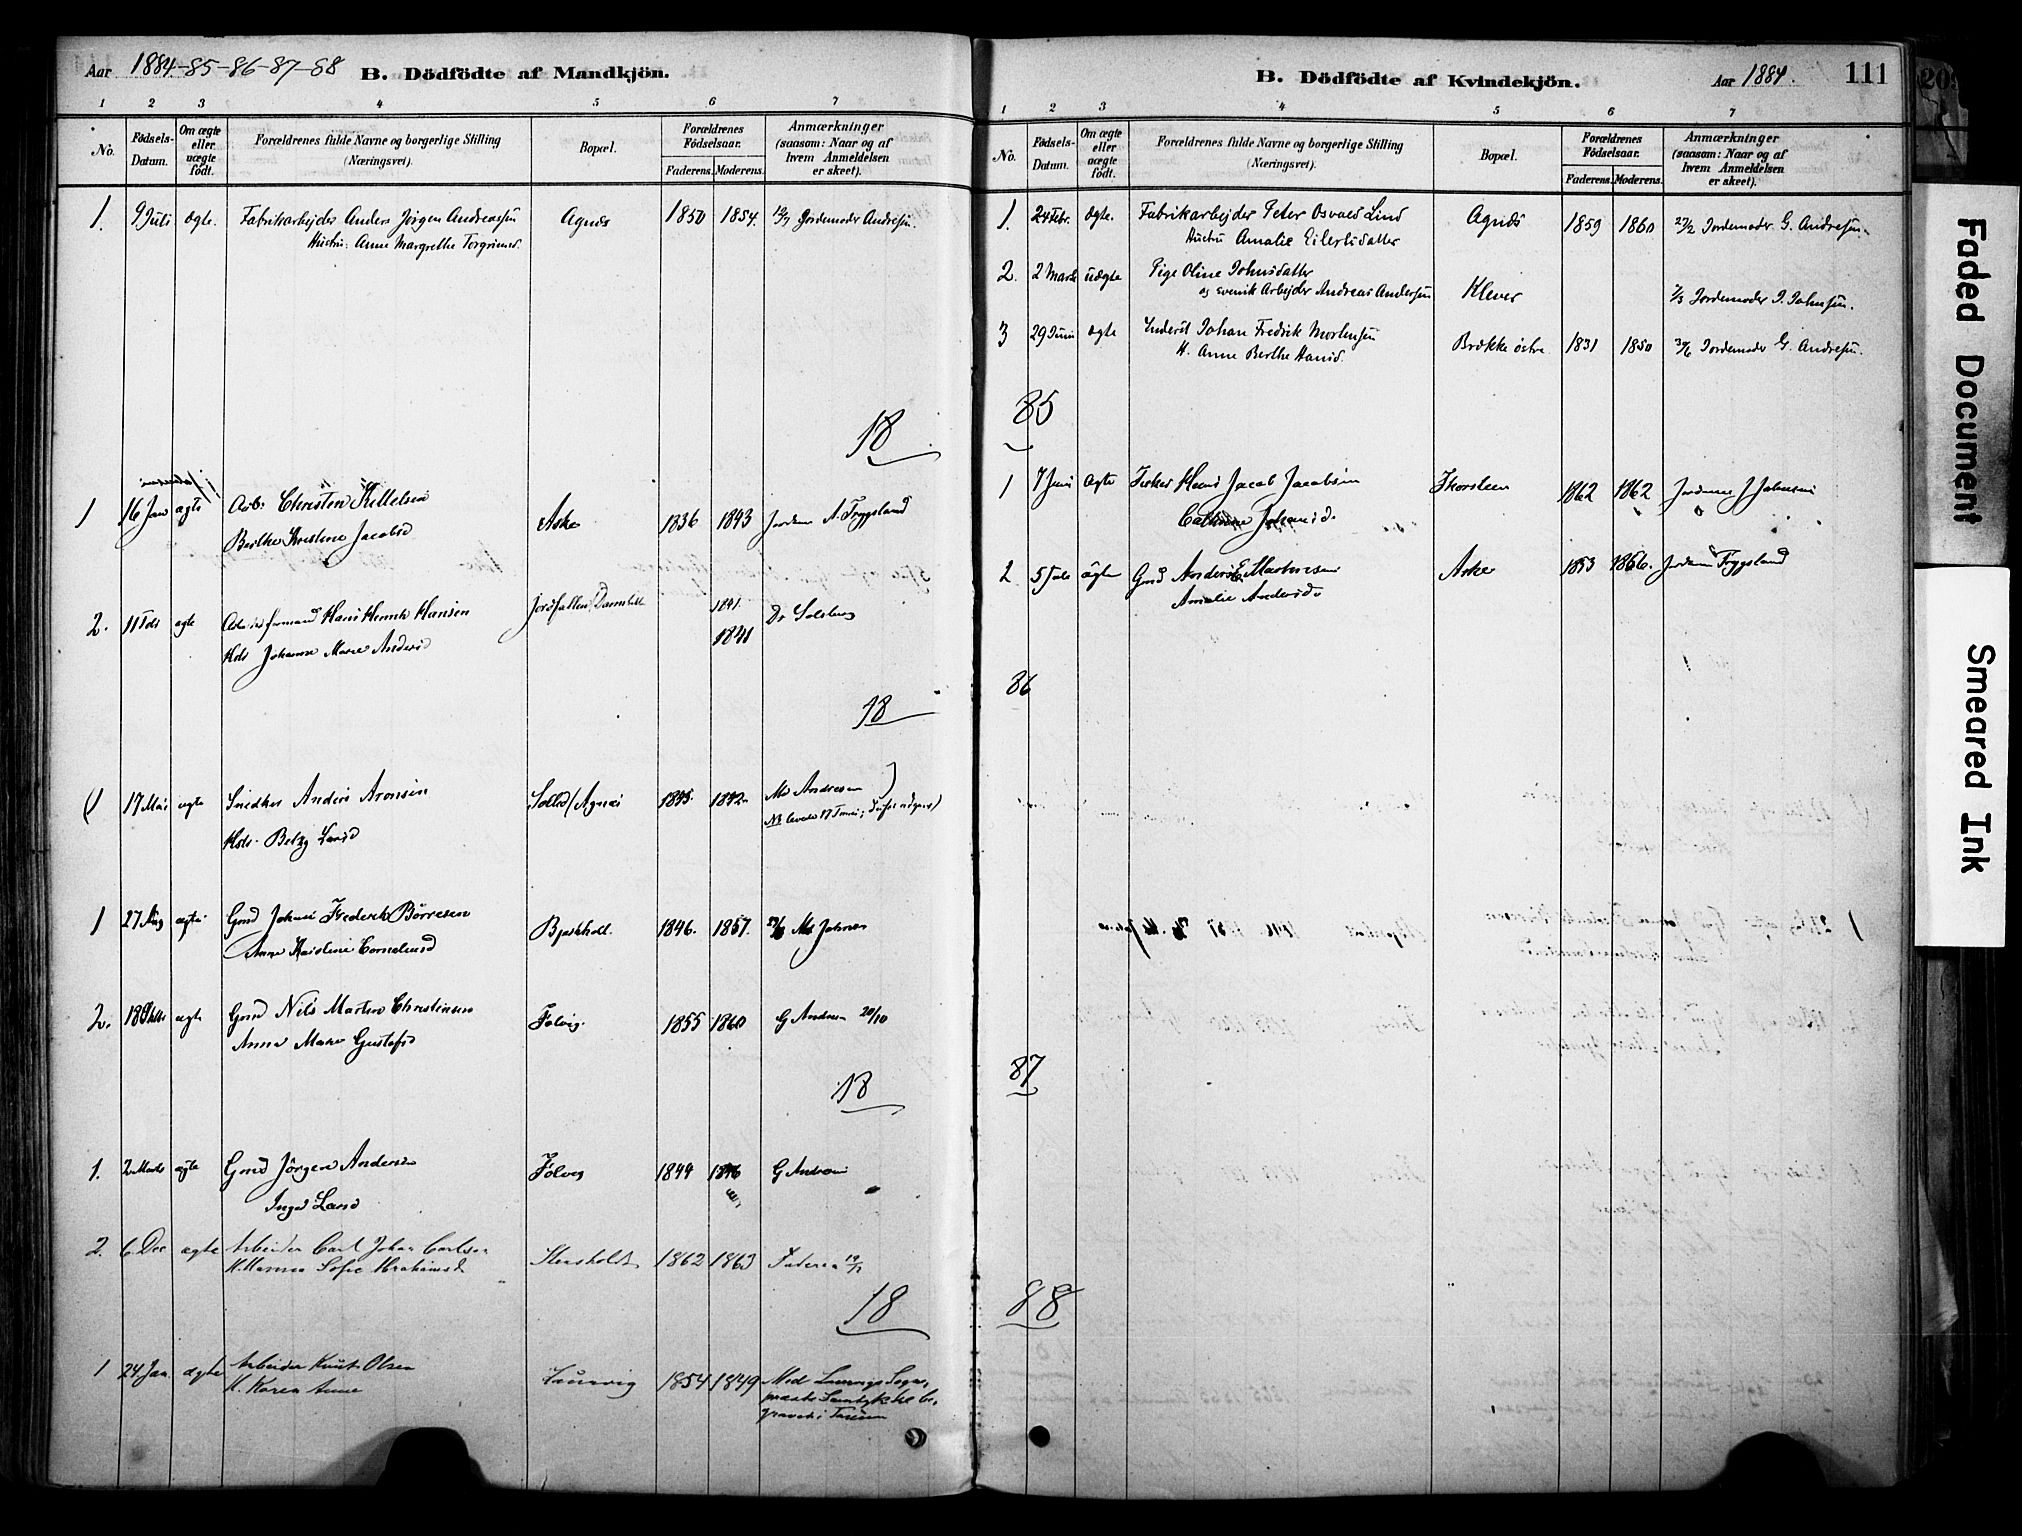 Aar 1884-85-86-87-88 B. Dödfödte af Mandkjön.
1 2 3 4 5 6 7
No. Födsels-Datum. Om ægte eller uægte födt. Forældrenes fulde Navne og borgerlige Stilling (Næringsvei). Bopæl. Forældrenes Födselsaar. Faderens. Moderens. Anmærkninger (saasom: Naar og af hvem Anmeldelsen er skeet).
1. 9 Juli ægte. Fabrikarbejder Anders Jørgen Andreassen Agnæs 1850 1854. 12/7 Jordemoder Andresen.
Hustru: Anne Margrethe Torgrimsd.
18
1 16 Jan ægte Arb: Christen Kittelsen Aske 1836 1843 Jordem A. Tryggsland
Berthe Kristine Jacobsd
2. 11 ægte Hans Henrik Hansen 1841. Dr Solberg
Hds Johanne Marie Andersd 1841
18
1 17 Mai ægte Snedker Anders Aronsen Agnæs 1845. 1842. Md Andresen
Hds. Betzy Larsd
1 27 Aug ægte Gmd Johan Frederik Börresen Bjerkholt. 1846. 1857. Md Johnsen
Anne Karoline Corneliusd
2. 18 ægte Gmd Nils Martin Christensen Folvig. 1855 1860 G Andresen 20/10
Anna Marie Gustafsd
18
1. 2 Marts ægte Gmd Jörgen Andersen Folvig 1844 1846 G Andresen
Inger Larsd
2. 6 Dec ægte Arbeider Carl Johan Carlsen 1862 1863 Faderen
H. Hanna Sofie Abrahamsd
18
1 24 Jan. ægte Arbeider Knut Olsen Laurvig 1854 1849 Med Laurvigs Sogne-
H. Karen Anne præsts Samtykke be-
gravet i
B. Dödfödte af Kvindekjön. Aar 1884. 111
1 2 3 4 5 6 7
No. Födsels-Datum. Om ægte eller uægte födt. Forældrenes fulde Navne og borgerlige Stilling (Næringsvei). Bopæl. Forældrenes Födselsaar. Faderens. Moderens. Anmærkninger (saasom: Naar og af hvem Anmeldelsen er skeet).
1. 24 Febr. ægte. Fabrikarbejder Peter Osvald Lind Agnæs 1859 1860 27/2 Jordemoder G. Andresen.
Hustru Amalie Eilertsdatter
2. 2 Marts uægte Pige Oline Johnsdatter
og svensk Arbejder Andreas Andersen Klever 7/3 Jordemoder J. Johnsen.
3 29 Juni ægte Inderst Johan Fredrik Mortensen Brække østre 1831 1850 30/6 Jordemoder G. Andresen.
H. Anne Berthe Hansd.
85
1 7 Juni ægte Fisker Hans Jacob Jacobsen 1862 1862 Jordem J Johnsen
Cathrine Johansd.
2 5 ægte Gmd Anders Mathisen Aske 1853 1856. Jordem Tryggsland
Amalie Andersd.
86
87
88
Faded Document
Smeared Ink